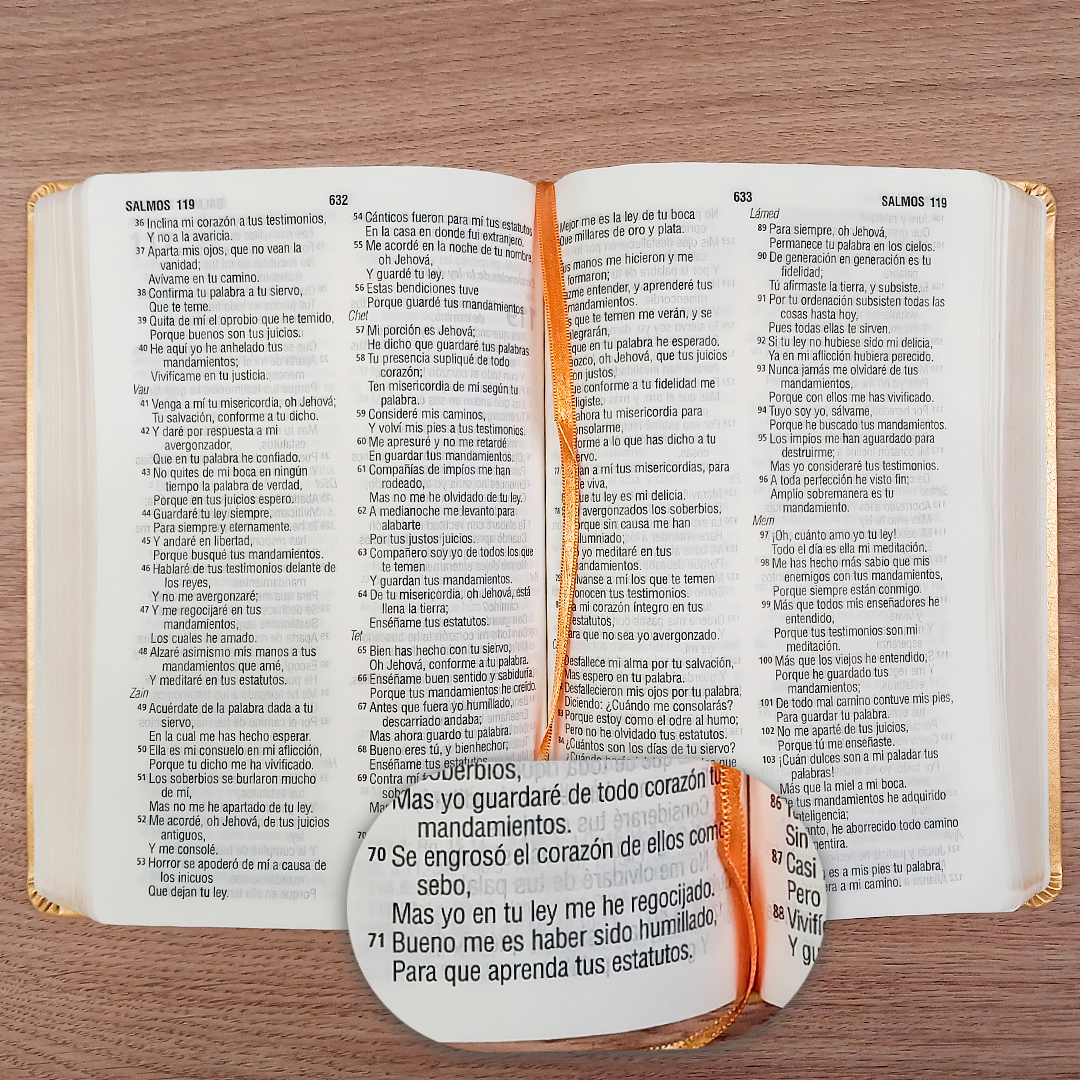 SALMOS 119
632
36 Inclina mi corazón a tus testimonios,
Y no a la avaricia.
37 Aparta mis ojos, que no vean la
vanidad;
Avívame en tu camino.
38 Confirma tu palabra a tu siervo,
Que te teme.
39 Quita de mí el oprobio que he temido,
Porque buenos son tus juicios.
40 He aquí yo he anhelado tus
mandamientos;
Vivifícame en tu justicia.
Vau
41 Venga a mí tu misericordia, oh Jehová;
Tu salvación, conforme a tu dicho.
42 Y daré por respuesta a mi
avergonzador,
Que en tu palabra he confiado.
43 No quites de mi boca en ningún
tiempo la palabra de verdad,
Porque en tus juicios espero.
44 Guardaré tu ley siempre,
Para siempre y eternamente.
45 Y andaré en libertad,
Porque busqué tus mandamientos.
46 Hablaré de tus testimonios delante de
los reyes,
Y no me avergonzaré;
47 Y me regocijaré en tus
mandamientos,
Los cuales he amado.
48 Alzaré asimismo mis manos a tus
mandamientos que amé,
Y meditaré en tus estatutos.
Zain
49 Acuérdate de la palabra dada a tu
siervo,
En la cual me has hecho esperar.
50 Ella es mi consuelo en mi aflicción,
Porque tu dicho me ha vivificado.
51 Los soberbios se burlaron mucho
de mí,
Mas no me he apartado de tu ley.
52 Me acordé, oh Jehová, de tus juicios
antiguos,
Y me consolé.
53 Horror se apoderó de mí a causa de
los inicuos
Que dejan tu ley.
54 Cánticos fueron para mí tus estatutos
En la casa en donde fui extranjero.
55 Me acordé en la noche de tu nombre,
oh Jehová,
Y guardé tu ley.
56 Estas bendiciones tuve
Porque guardé tus mandamientos.
Chet
57 Mi porción es Jehová;
He dicho que guardaré tus palabras.
58 Tu presencia supliqué de todo
corazón;
Ten misericordia de mí según tu
palabra.
59 Consideré mis caminos,
Y volví mis pies a tus testimonios.
60 Me apresuré y no me retardé
En guardar tus mandamientos.
61 Compañías de impíos me han
rodeado,
Mas no me he olvidado de tu ley.
62 A medianoche me levanto para
alabarte
Por tus justos juicios.
63 Compañero soy yo de todos los que
te temen
Y guardan tus mandamientos.
64 De tu misericordia, oh Jehová, está
llena la tierra;
Enséñame tus estatutos.
Tet
65 Bien has hecho con tu siervo,
Oh Jehová, conforme a tu palabra.
66 Enséñame buen sentido y sabiduría,
Porque tus mandamientos he creído.
67 Antes que fuera yo humillado,
descarriado andaba;
Mas ahora guardo tu palabra.
68 Bueno eres tú, y bienhechor;
Enséñame tus estatutos.
69 Contra mí
70
soberbios,
Mas yo guardaré de todo corazón
mandamientos.
70 Se engrosó el corazón de ellos como
sebo,
Mas yo en tu ley me he regocijado.
71 Bueno me es haber sido humillado,
Para que aprenda tus estatutos.
86
Sin
87 Casi
Pero
88
Y
633
SALMOS 119
Mejor me es la ley de tu boca
Que millares de oro y plata.
manos me hicieron y me
formaron;
entender, y aprenderé tus
mandamientos.
que te temen me verán, y se
alegrarán,
que en tu palabra he esperado.
oh Jehová, que tus juicios
justos,
conforme a tu fidelidad me
ahora tu misericordia para
a lo que has dicho a tu
a mí tus misericordias, para
viva,
tu ley es mi delicia.
avergonzados los soberbios,
sin causa me han
yo meditaré en tus
mandamientos.
a mí los que te temen
conocen tus testimonios.
mi corazón íntegro en tus
estatutos,
que no sea yo avergonzado.
Desfallece mi alma por tu salvación,
Mas espero en tu palabra.
Desfallecieron mis ojos por tu palabra,
Diciendo: ¿Cuándo me consolarás?
Porque estoy como el odre al humo;
Pero no he olvidado tus estatutos.
84 ¿Cuántos son los días de tu siervo?
Lámed
89 Para siempre, oh Jehová,
Permanece tu palabra en los cielos.
90 De generación en generación es tu
fidelidad;
Tú afirmaste la tierra, y subsiste.
91 Por tu ordenación subsisten todas las
cosas hasta hoy,
Pues todas ellas te sirven.
92 Si tu ley no hubiese sido mi delicia,
Ya en mi aflicción hubiera perecido.
93 Nunca jamás me olvidaré de tus
mandamientos,
Porque con ellos me has vivificado.
94 Tuyo soy yo, sálvame,
Porque he buscado tus mandamientos.
95 Los impíos me han aguardado para
destruirme;
Mas yo consideraré tus testimonios.
96 A toda perfección he visto fin;
Amplio sobremanera es tu
mandamiento.
Mem
97 ¡Oh, cuánto amo yo tu ley!
Todo el día es ella mi meditación.
98 Me has hecho más sabio que mis
enemigos con tus mandamientos,
Porque siempre están conmigo.
99 Más que todos mis enseñadores he
entendido,
Porque tus testimonios son mi
meditación.
100 Más que los viejos he entendido,
Porque he guardado tus
mandamientos;
101 De todo mal camino contuve mis pies,
Para guardar tu palabra.
102 No me aparté de tus juicios,
Porque tú me enseñaste.
103 ¡Cuán dulces son a mi paladar tus
palabras!
Más que la miel a mi boca.
tus mandamientos he adquirido
inteligencia;
he aborrecido todo camino
mentira.
es a mis pies tu palabra,
a mi camino.